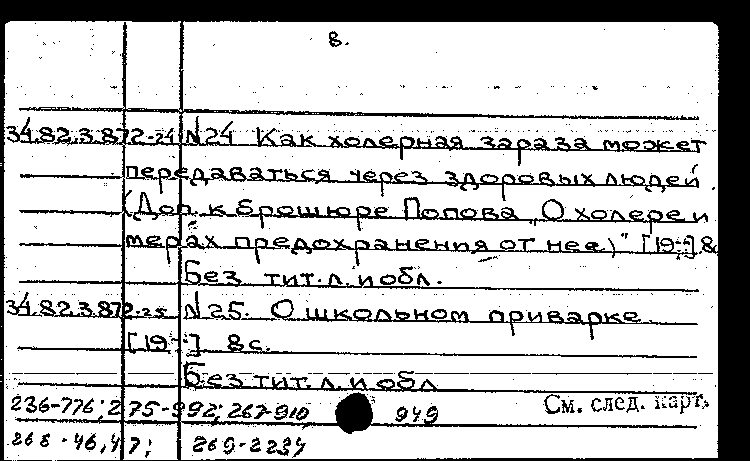 8.
34.82.3.872-24 N24 Как холерная зараза может
передаваться через здоровых людей.
(Доп. к брошюре Попова „О холере и
мерах предохранения от нее.)" [19--] 8с
Без тит. л. и обл.
34.82.3.872-25 N25. О школьном приварке.
[19--] 8с.
Без тит. л. и обл
236-776; 275-992; 267-910 949 См. след. карт.
268-46,47; 269-2234